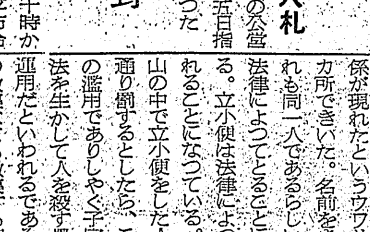 入札
の公営
五日指
つた
十時か
係が現れたというウワ
カ所できいた。名前を
れも同一人であるらし
法律によつてとること
る。立小便は法律によ
れることになつている。
山の中で立小便をした
通り罰するとしたら、
の濫用でありしやく子
法を生かして人を殺す
運用だといわれるであ